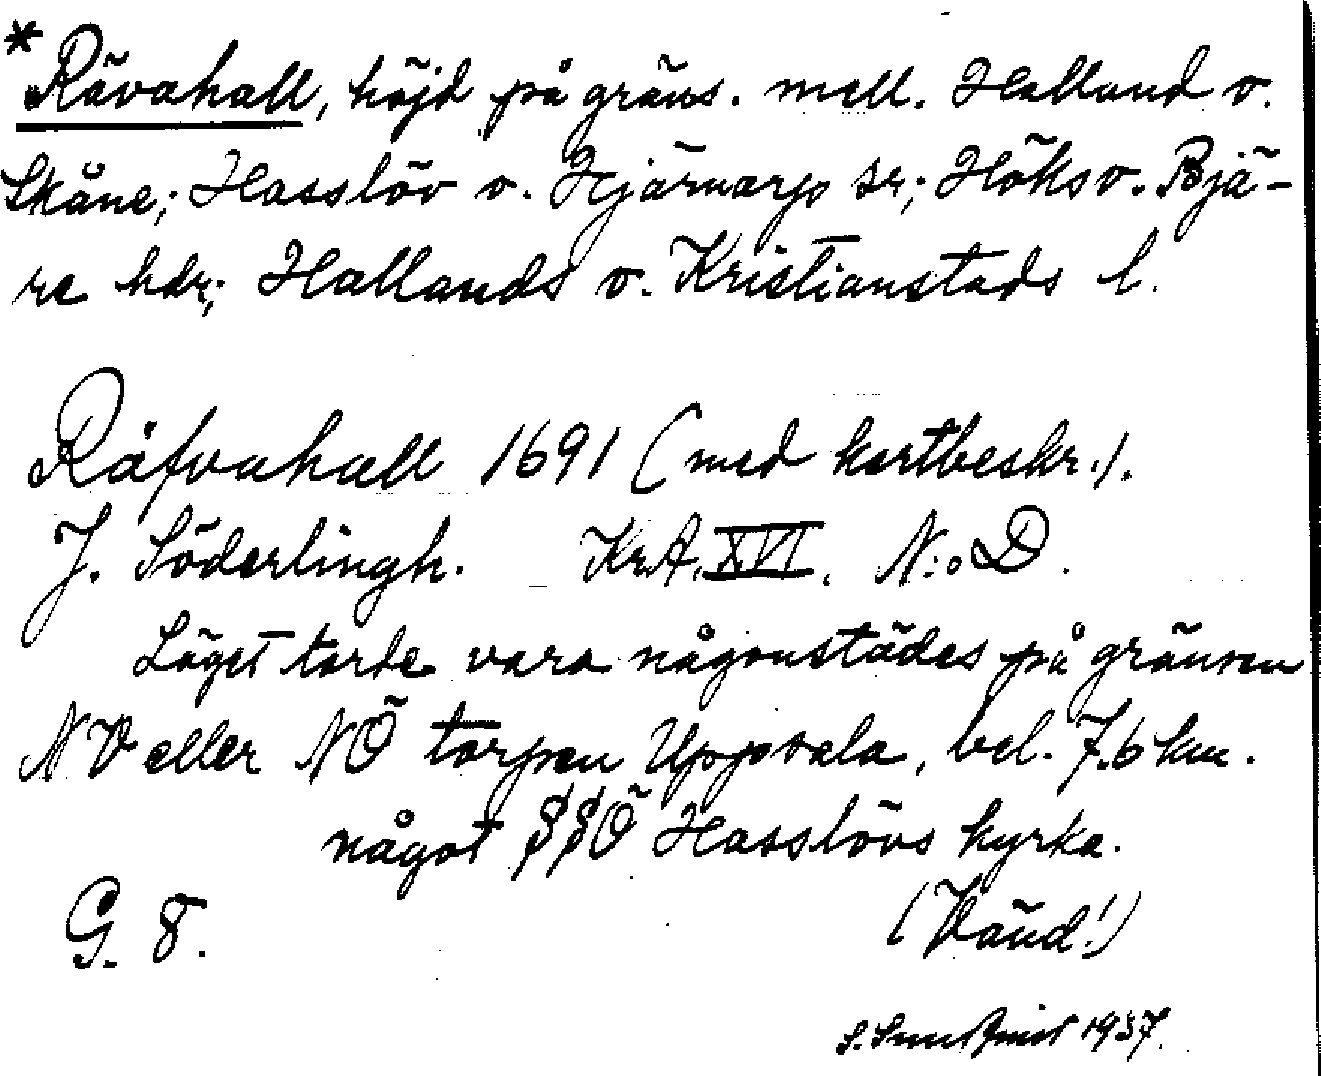 * Rävahall, höjd på gräns. mell. Halland o.
Skåne; Hasslöv o. Hjärnarp sr; Höks o. Bjä-
re hdr; Hallands o. Kristianstads l.
Räfvahall 1691 (med kartbeskr.).
J. Söderlingh. KrA. XVI. N:o D.
Läget torde vara någonstädes på gränsen
NV eller NÖ torpen Uppsala, bel. 7.6 km.
något SSÖ Hasslövs kyrka.
G. 8.
(Vänd!)
S. 1937.